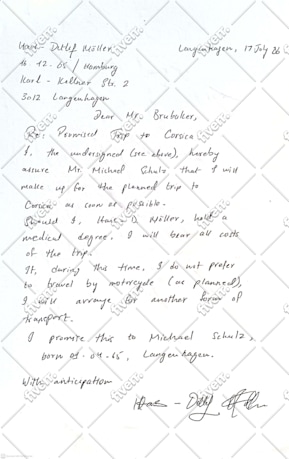 Hans - Detlef Möller Langenhagen, 17 July 86
16.12.65 / Hamburg
Karl - Kellner Str. 2
3012 Langenhagen
Dear Mr. Brubaker,
Re: Promised Trip to Corsica
I, the undersigned (see above), hereby
assure Mr. Michael Schulz that I will
make up for the planned trip to
Corsica as soon as possible.
Should I, Hans-D. Möller, hold a
medical degree, I will bear all costs
of the trip.
If, during this time, I do not prefer
to travel by motorcycle (as planned),
I will arrange for another form of
transport.
I promise this to Michael Schulz,
born 01-04-65, Langenhagen.
With anticipation
Hans - Detlef